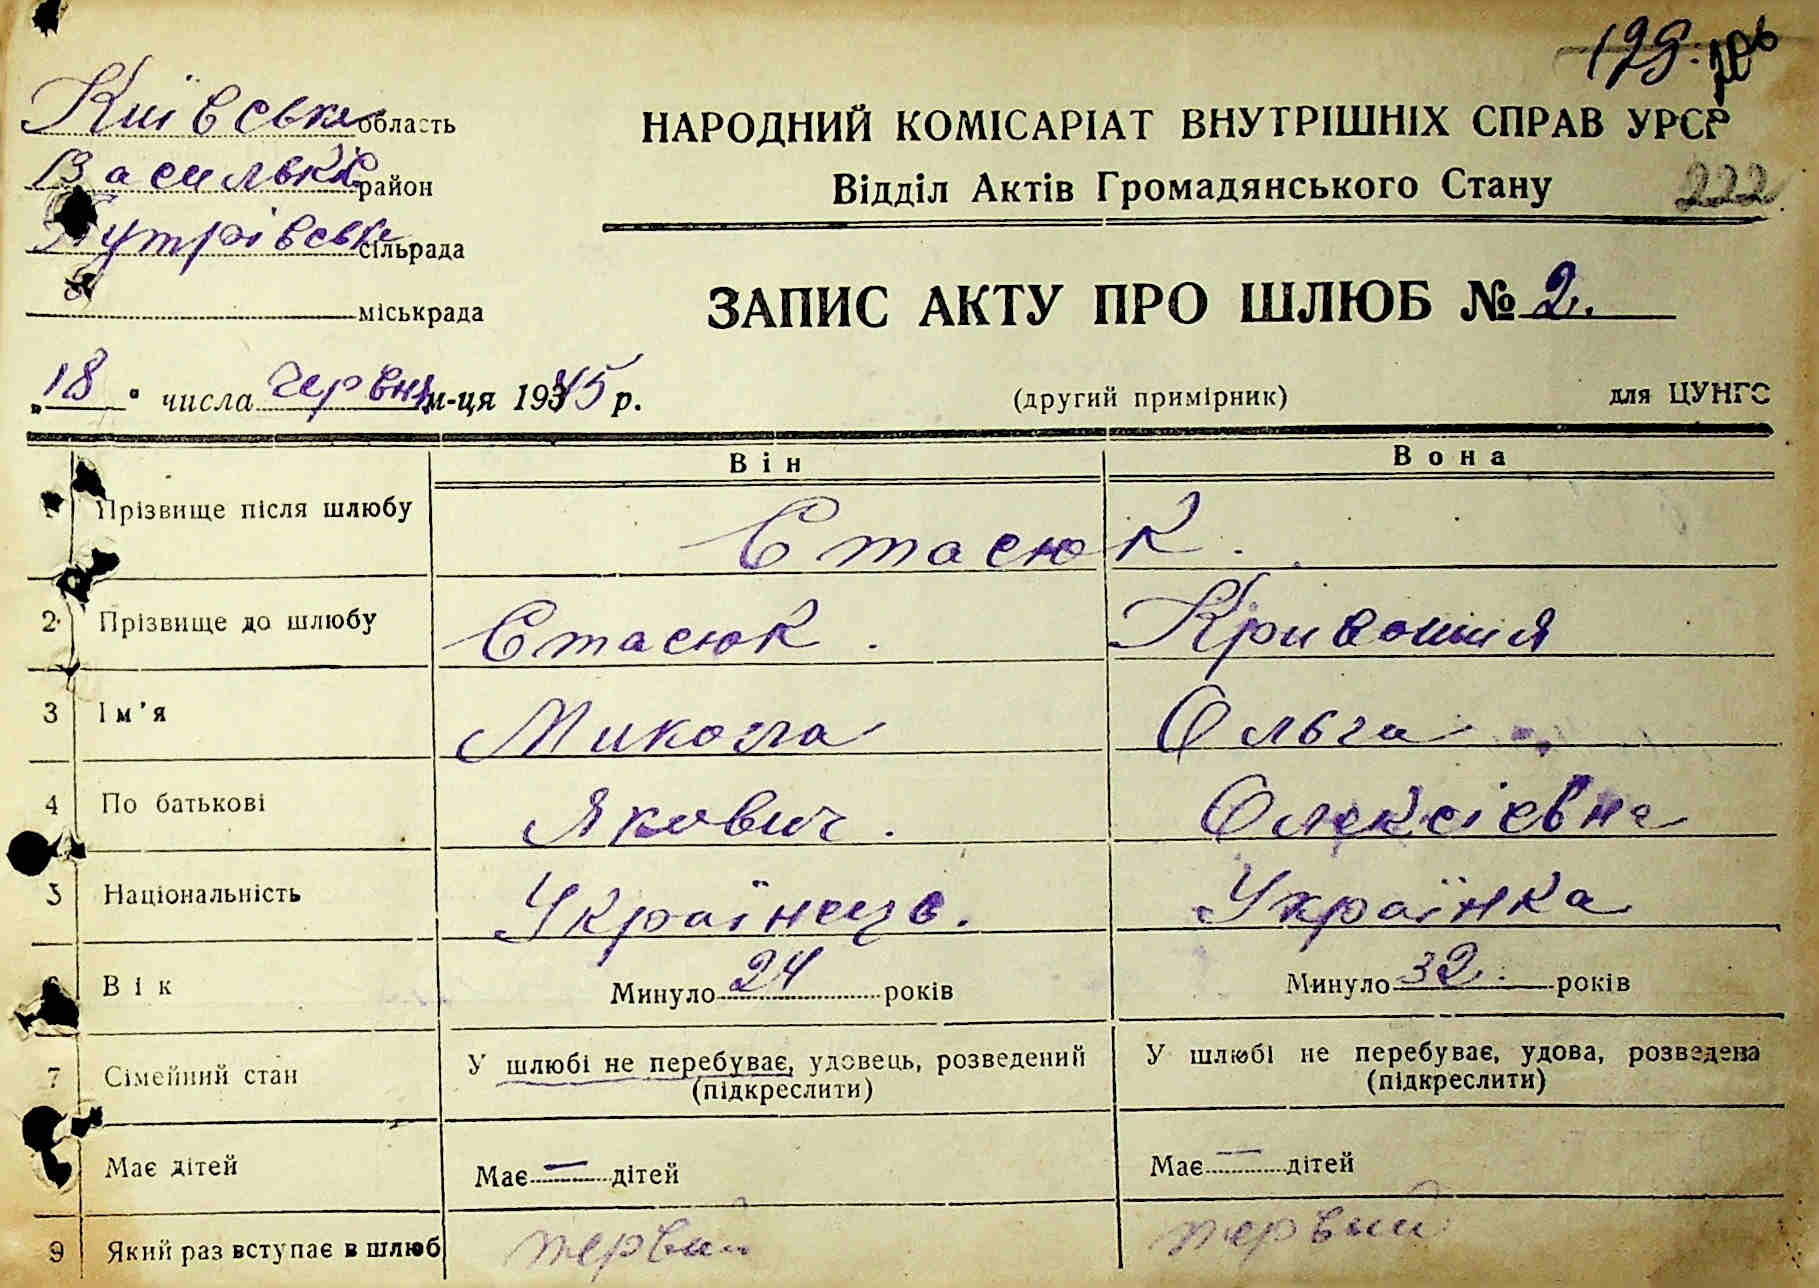 199. 106
Київська область
НАРОДНИЙ КОМІСАРІАТ ВНУТРІШНІХ СПРАВ УРСР
Васильків район
Відділ Актів Громадянського Стану 222
Путрівська сільрада
міськрада
ЗАПИС АКТУ ПРО ШЛЮБ № 2.
„18" числа червня м-ця 1945 р.
(другий примірник) для ЦУНГО
Він Вона
Прізвище після шлюбу Стасюк.
2. Прізвище до шлюбу Стасюк. Кривошия
3 Ім'я Микола Ольга
4 По батькові Якович. Олексієвна
5 Національність Українець. Українка
6 Вік Минуло 24 років Минуло 32. років
7 Сімейний стан У шлюбі не перебуває, удовець, розведений У шлюбі не перебуває, удова, розведена
(підкреслити) (підкреслити)
Має дітей Має — дітей Має — дітей
9 Який раз вступає в шлюб первий первий